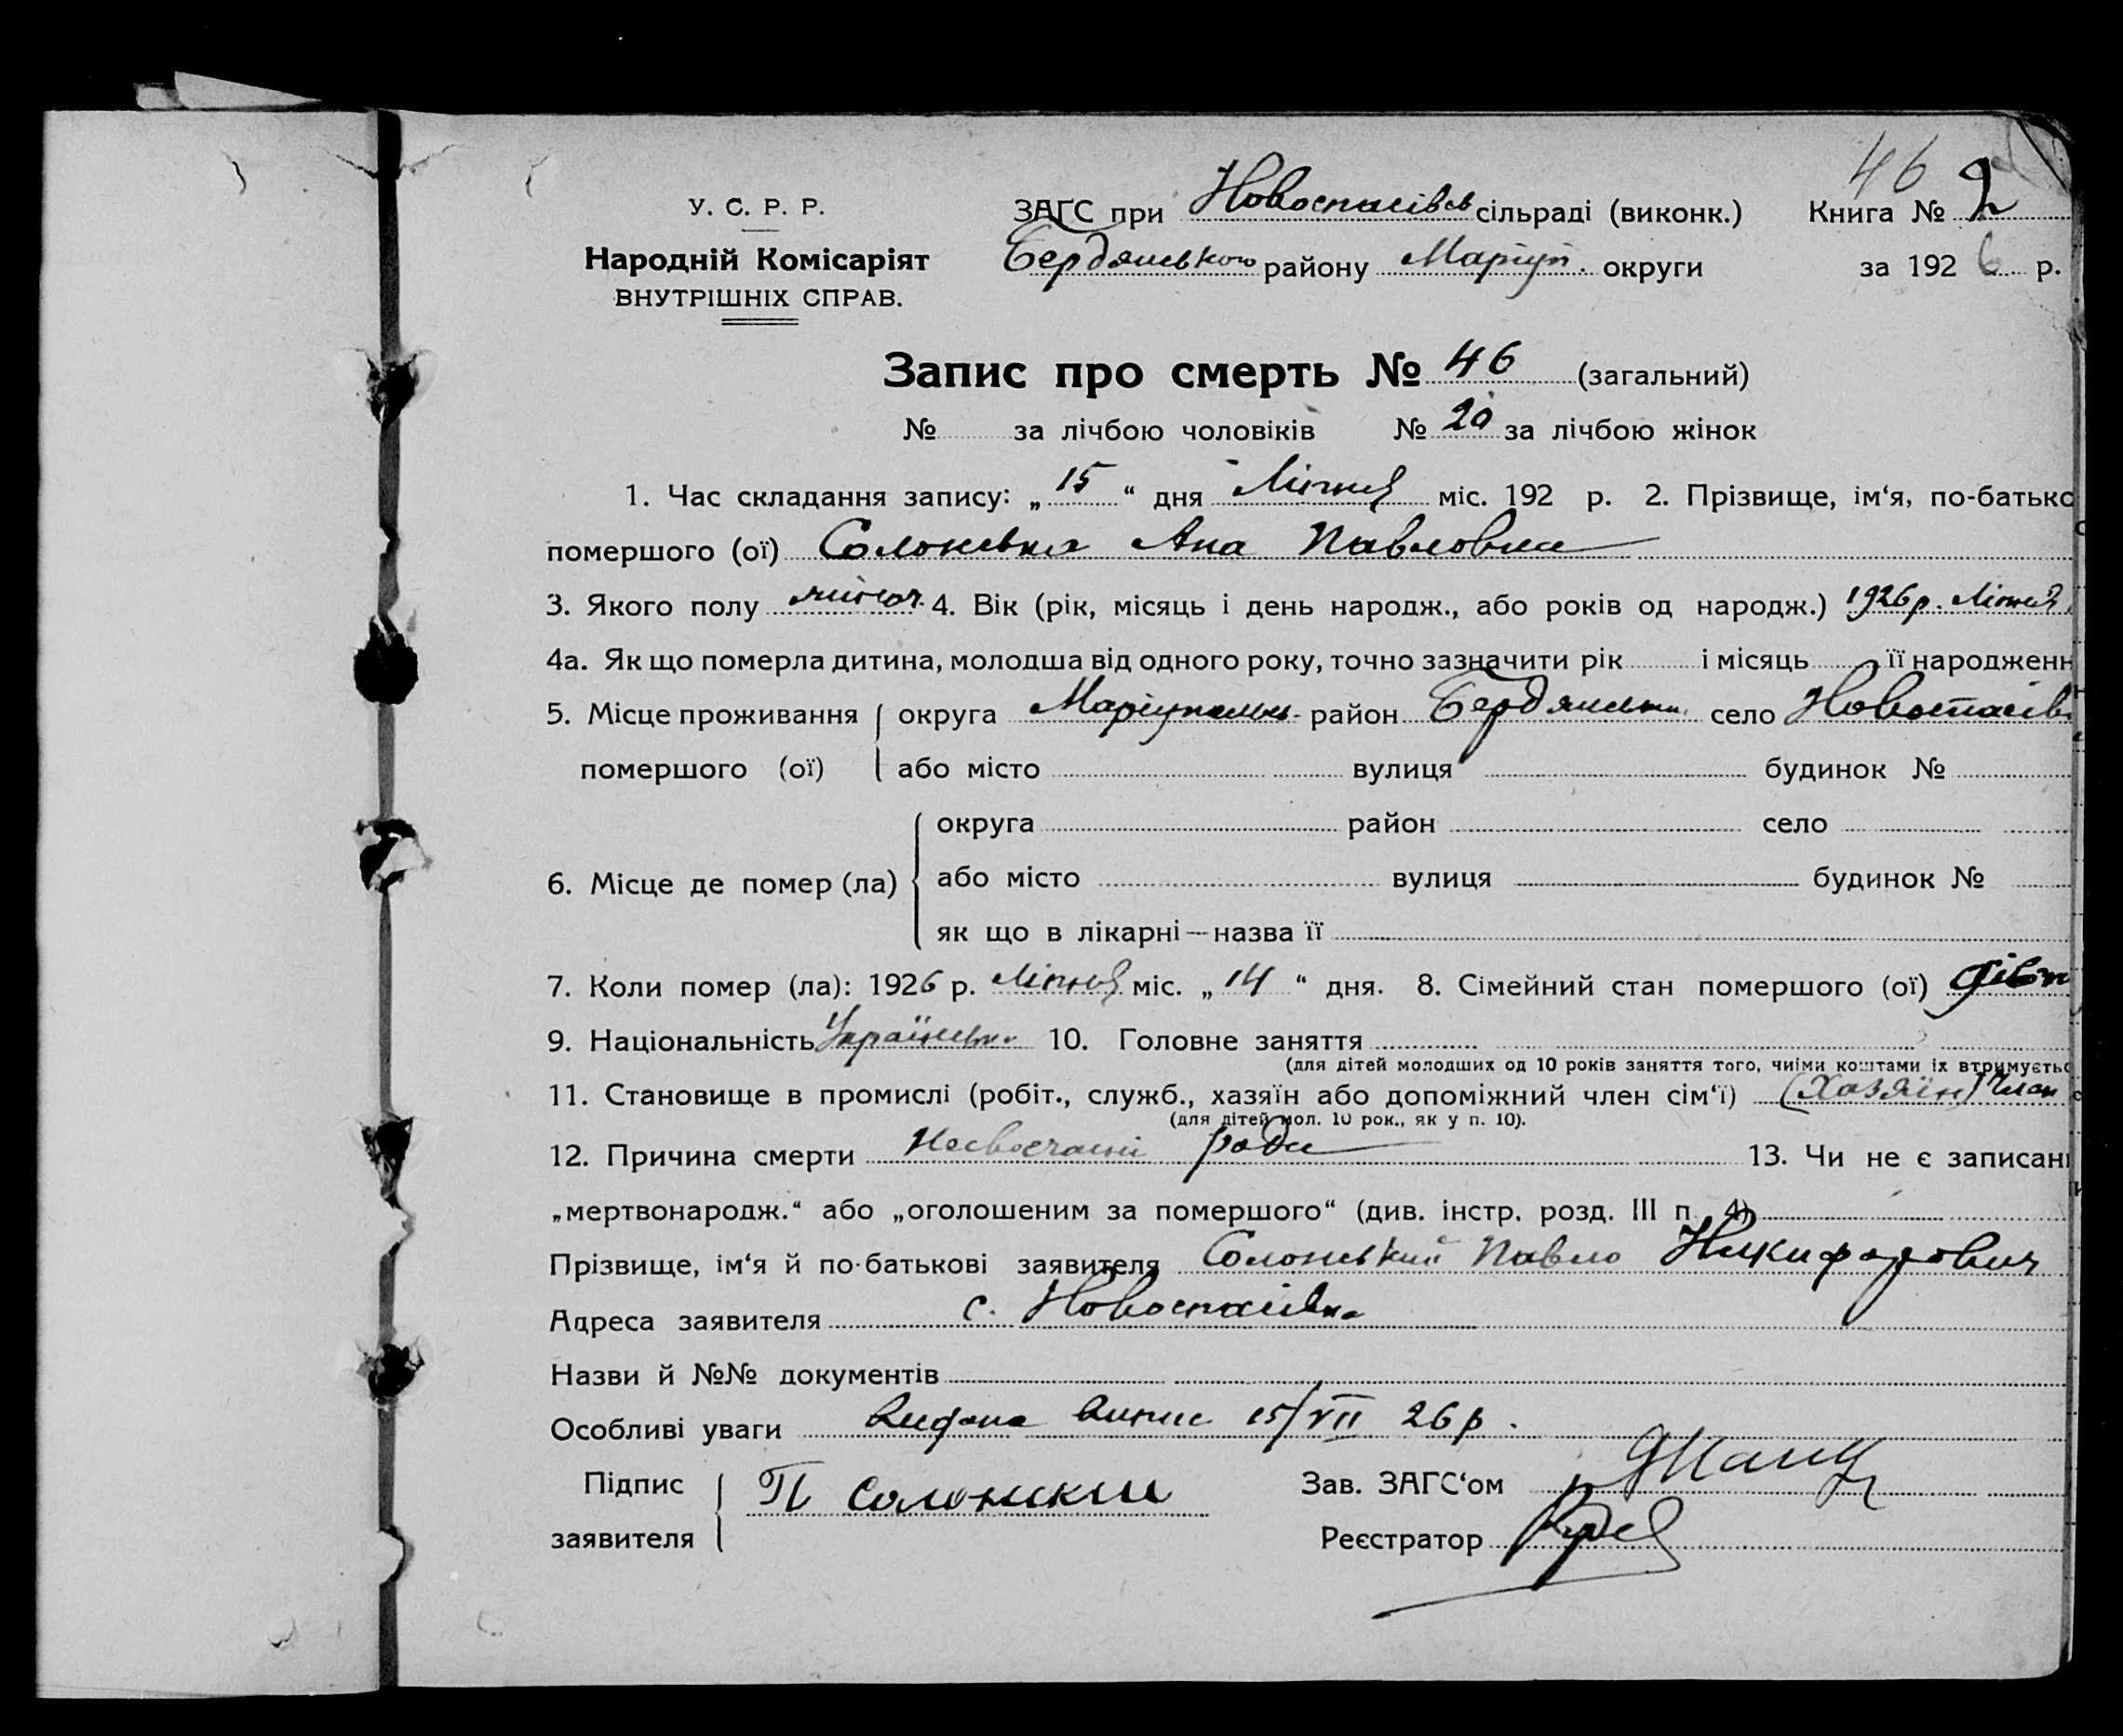 46
У. С. Р. Р.
Народній Комісаріят
ВНУТРІШНІХ СПРАВ.
ЗАГС при Новоспасівсь сільраді (виконк.) Книга № 2
Бердянського району Маріуп. округи за 1926 р.
Запис про смерть № 46 (загальний)
№ за лічбою чоловіків № 20 за лічбою жінок
1. Час складання запису: „15“ дня Липня міс. 192 р. 2. Прізвище, ім‘я, по-батько
помершого (ої) Солонська Ана Павловна
3. Якого полу жіноч. 4. Вік (рік, місяць і день народж., або років од народж.) 1926 р. Липня
4а. Як що померла дитина, молодша від одного року, точно зазначити рік і місяць її народженн
5. Місце проживання округа Маріупольсь. район Бердянськ. село Новоспасів
помершого (ої) або місто вулиця будинок №
округа район село
6. Місце де помер (ла) або місто вулиця будинок №
як що в лікарні—назва її
7. Коли помер (ла): 1926 р. Липня міс. „14“ дня. 8. Сімейний стан помершого (ої)
9. Національність Українськ. 10. Головне заняття
(для дітей молодших од 10 років заняття того, чиіми коштами іх втримуєтьс
11. Становище в промислі (робіт., служб., хазяїн або допоміжний член сім‘ї) (Хазяїн) Член
(для дітей мол. 10 рок., як у п. 10).
12. Причина смерти Несвоєчасні роди 13. Чи не є записан
„мертвонародж.“ або „оголошеним за помершого“ (див. інстр. розд. III п. 4)
Прізвище, ім‘я й по-батькові заявителя Солонський Павло Никифорович
Адреса заявителя с. Новоспасівка
Назви й №№ документів
Особливі уваги Видана випис 15/VII 26 р.
Підпис П Солонскии Зав. ЗАГС‘ом
заявителя Реєстратор